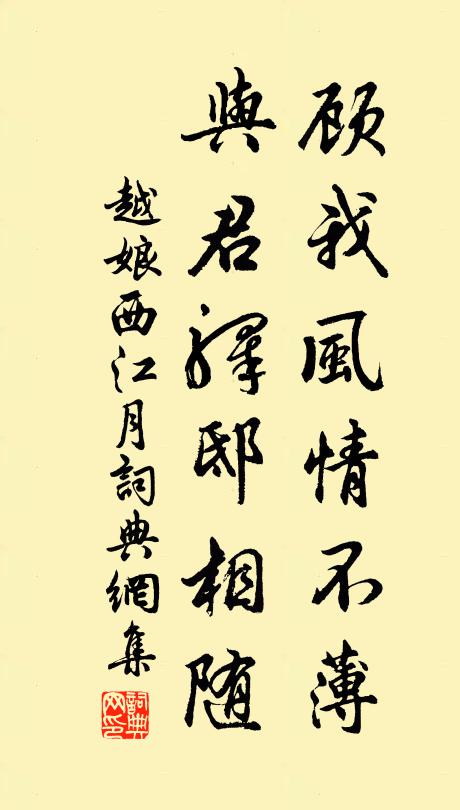 顾我風情不薄
與君驛邸相随
越娘西江月詞典網集
詞典
网印